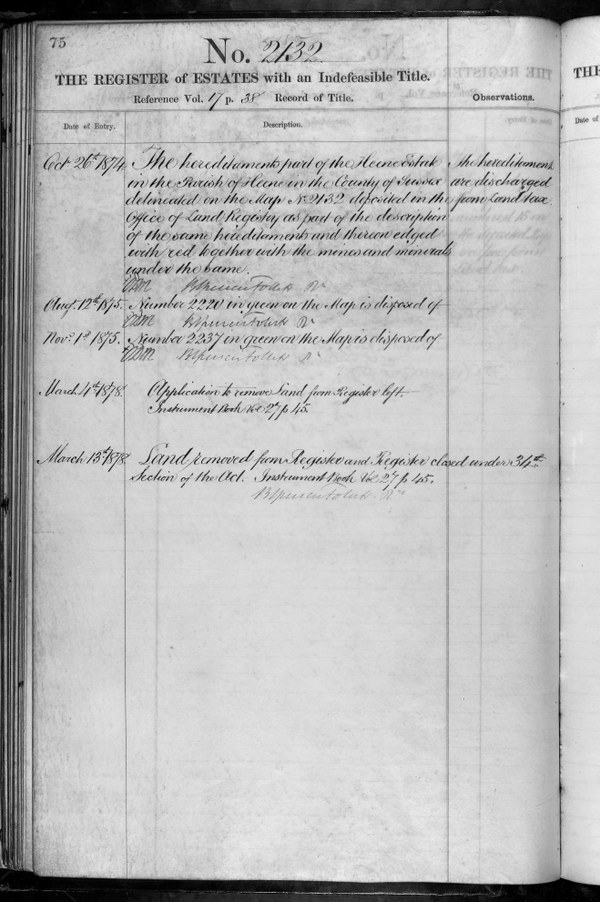 75
No. 2132
THE REGISTER of ESTATES with an Indefeasible Title.
Reference Vol. 17 p. 38 Record of Title.
Observations.
Date of Entry.
Description.
Oct 26th 1874
The hereditaments part of the Heene Estate
in the Parish of Heene in the County of Sussex
delineated on the Map No 2132 deposited in the
Office of Land Registry as part of the description
of the same hereditaments and thereon edged
with red together with the mines and minerals
under the same.
The hereditaments
are discharged
from Land tax.
Augt. 12th 1875.
Number 2220 in green on the Map is disposed of
Novr. 1st 1875.
Number 2237 in green on the Map is disposed of
March 4th 1878.
Application to remove Land from Register left.
Instrument Book Vol 27 p 45.
March 13th 1878.
Land removed from Register and Register closed under 34th
Section of the Act. Instrument Book Vol 27 p 45.
THE
Date of